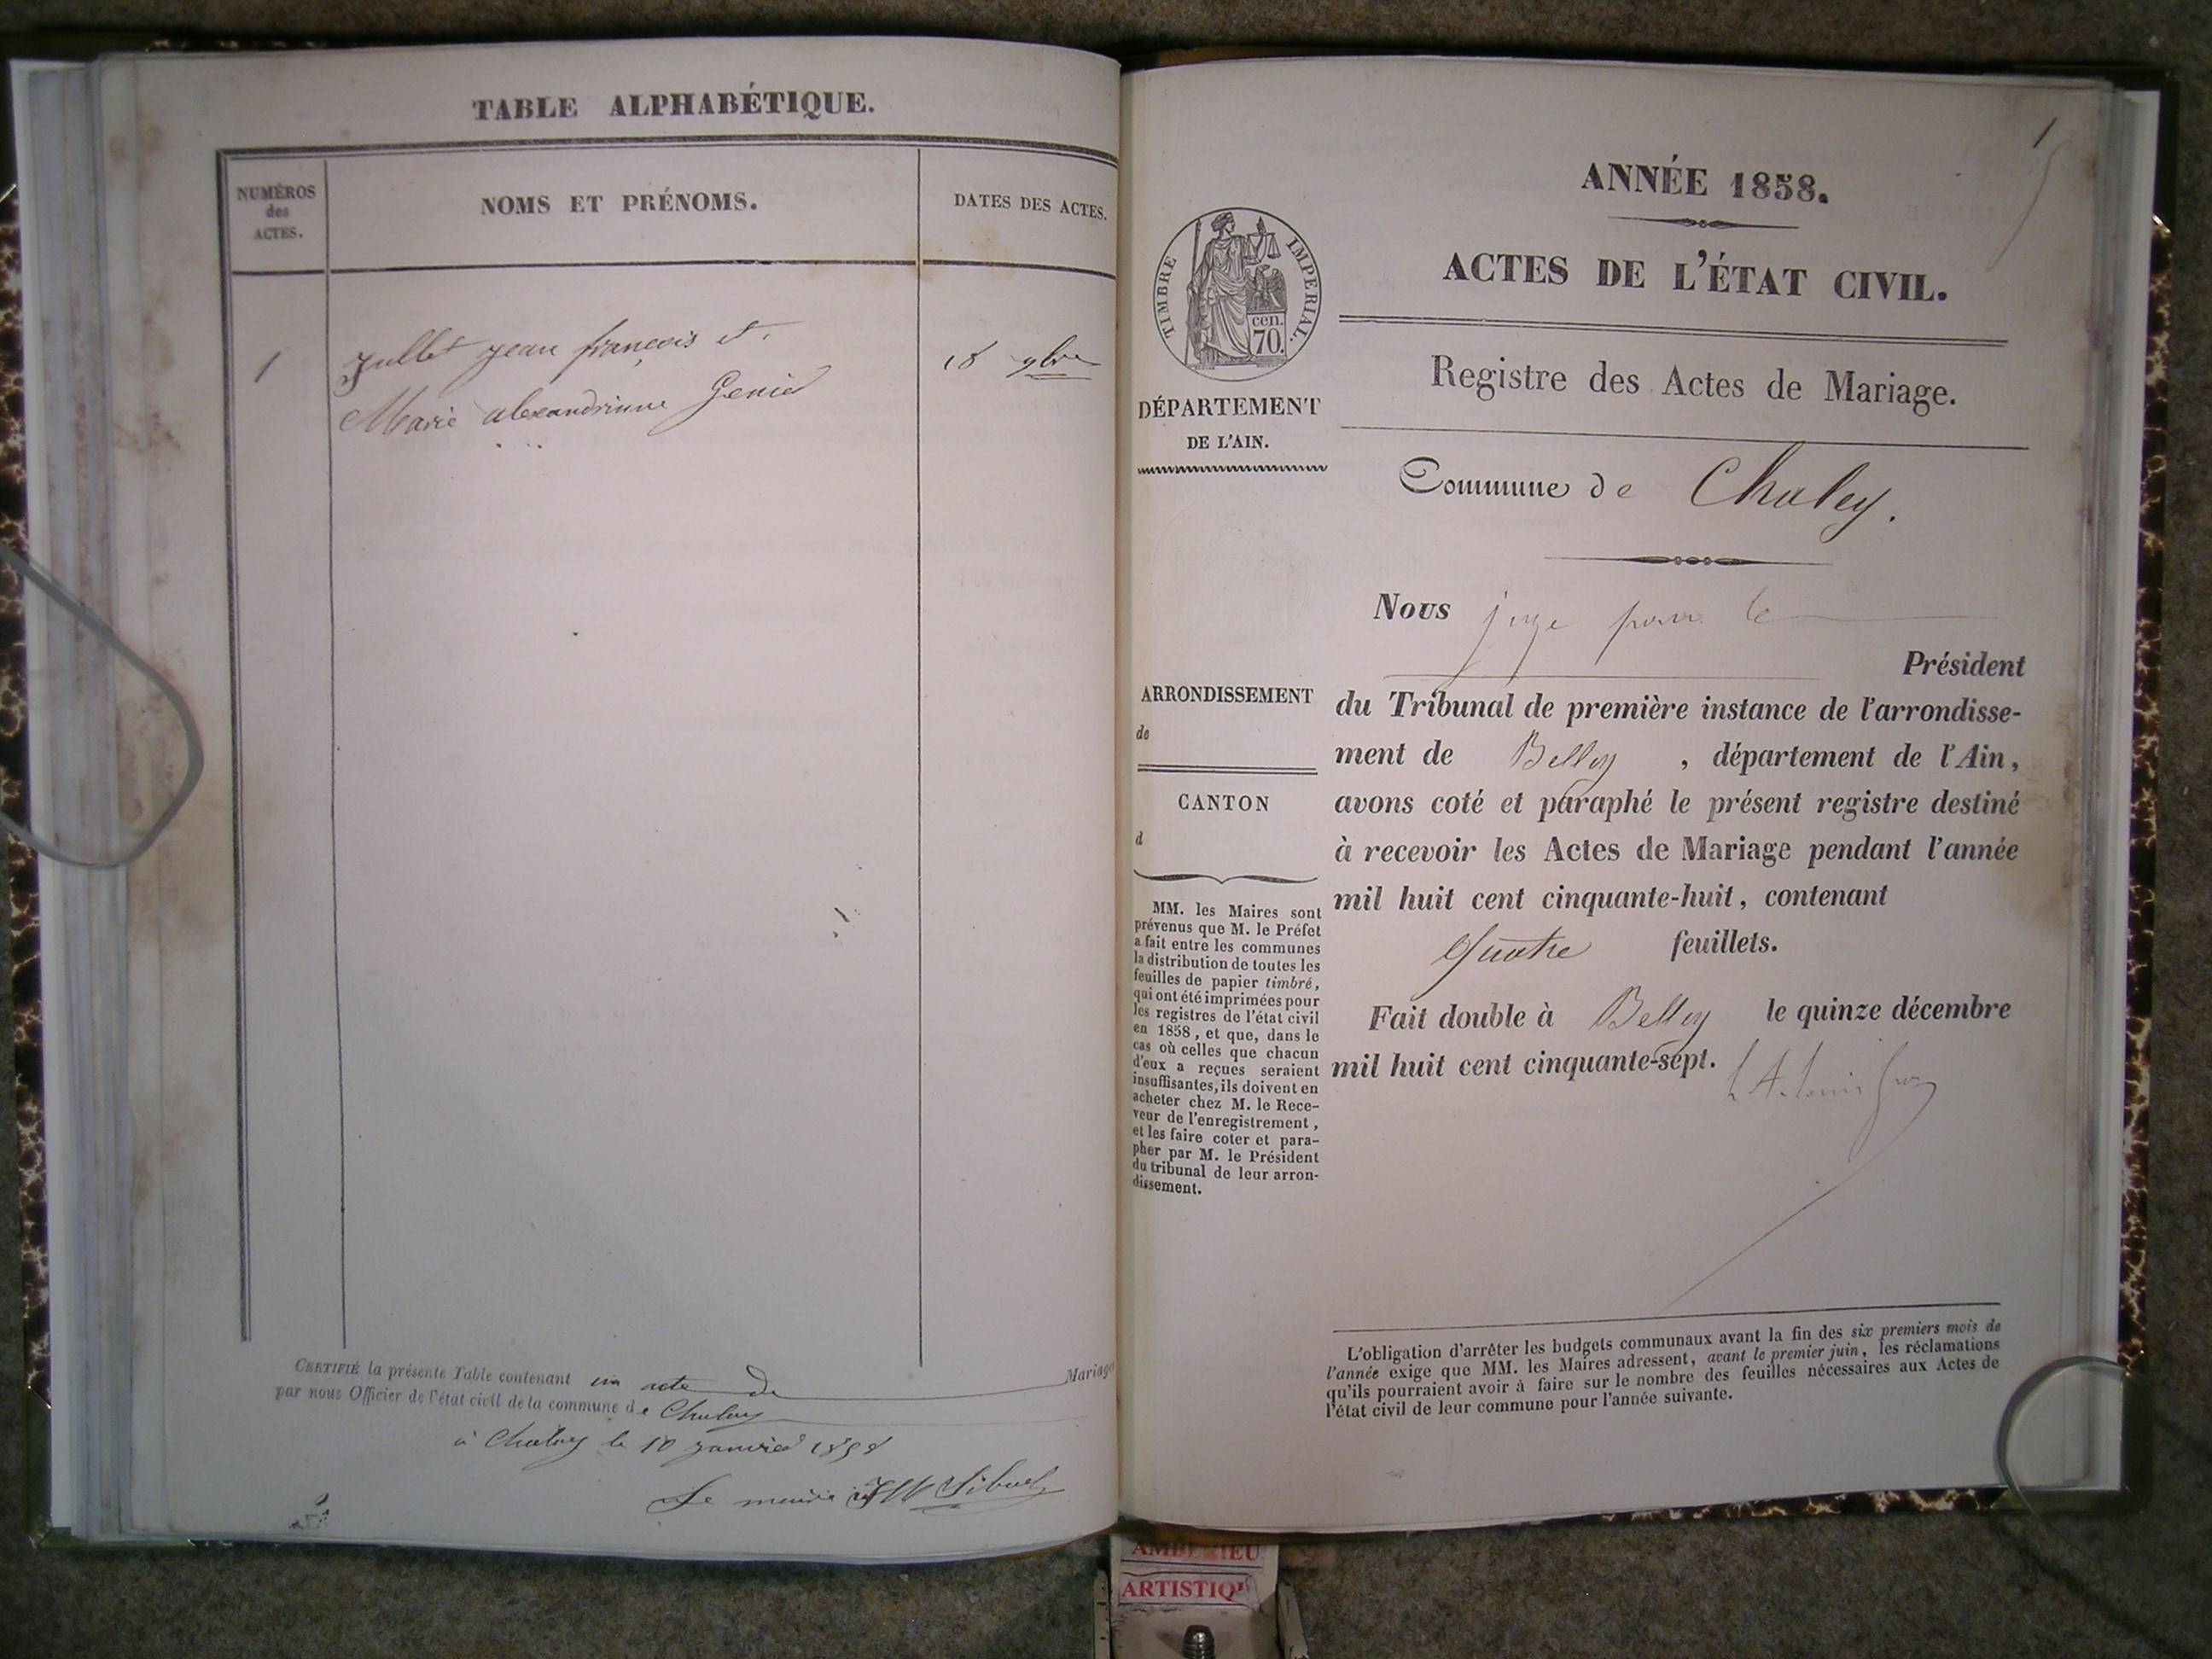 TABLE ALPHABÉTIQUE.
NUMÉROS
des
ACTES.
NOMS ET PRÉNOMS.
DATES DES ACTES.
1
Jullet jean françois et
Marie alexandrinne Genie
18 9bre
CERTIFIÉ la présente Table contenant un acte de Mariage
par nous Officier de l'état civil de la commune de Chaley
à Chaley le 10 janvier 1858
Le maire Sibuet
1
ANNÉE 1858.
ACTES DE L'ÉTAT CIVIL.
TIMBRE IMPERIAL.
cen.
70.
Registre des Actes de Mariage.
DÉPARTEMENT
DE L'AIN.
Commune de Chaley.
Nous juge pour le
Président
du Tribunal de première instance de l'arrondisse-
ment de Belley , département de l'Ain,
avons coté et paraphé le présent registre destiné
à recevoir les Actes de Mariage pendant l'année
mil huit cent cinquante-huit, contenant
Quatre feuillets.
Fait double à Belley le quinze décembre
mil huit cent cinquante-sept.
ARRONDISSEMENT
de
CANTON
d
MM. les Maires sont
prévenus que M. le Préfet
a fait entre les communes
la distribution de toutes les
feuilles de papier timbré,
qui ont été imprimées pour
les registres de l'état civil
en 1858, et que, dans le
cas où celles que chacun
d'eux a reçues seraient
insuffisantes, ils doivent en
acheter chez M. le Rece-
veur de l'enregistrement,
et les faire coter et para-
pher par M. le Président
du tribunal de leur arron-
dissement.
L'obligation d'arrêter les budgets communaux avant la fin des six premiers mois de
l'année exige que MM. les Maires adressent, avant le premier juin, les réclamations
qu'ils pourraient avoir à faire sur le nombre des feuilles nécessaires aux Actes de
l'état civil de leur commune pour l'année suivante.
ARTISTIQ